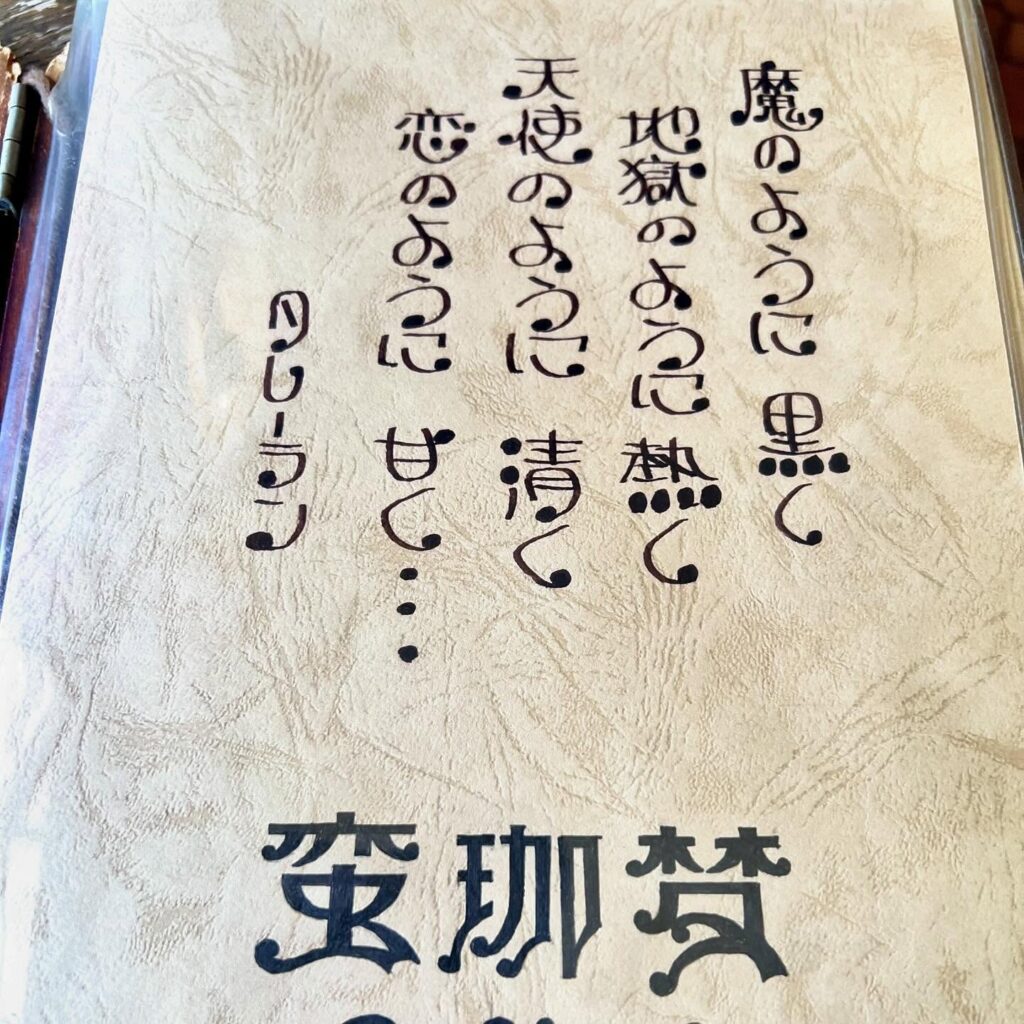 魔のように 黒く
地獄のように 熱く
天使のように 清く
恋のように 甘く・・・
タレーラン
蛮珈梵